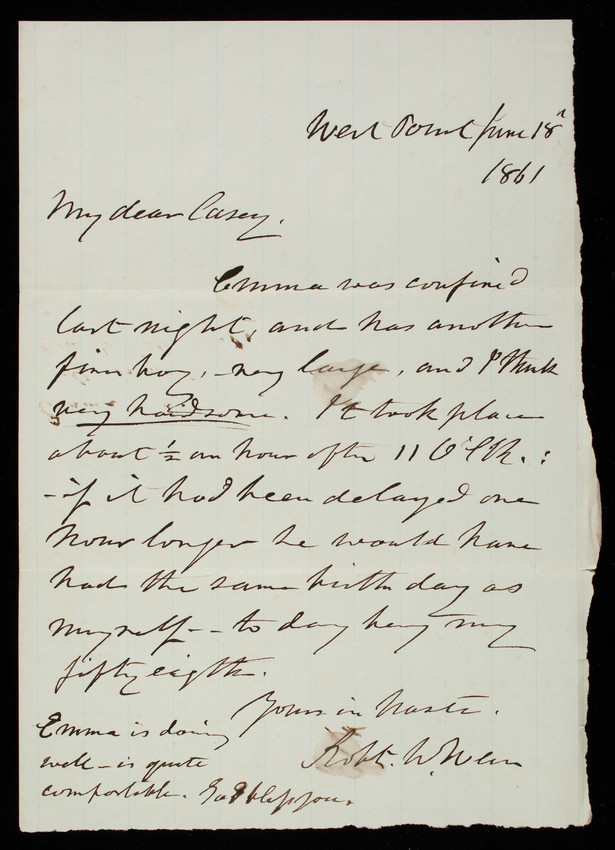 West Point June 18th
1861
My dear Casey.
Emma was confined
last night, and has another
fine boy, - very large, and I think
very handsome. It took place
about ½ an hour after 11 O'Clk. :
- if it had been delayed one
hour longer he would have
had the same birth day as
myself - - to day being my
fifty eighth.
Yours in haste.
Robt. W. Weir
Emma is doing
well - is quite
comfortable. God bless you.